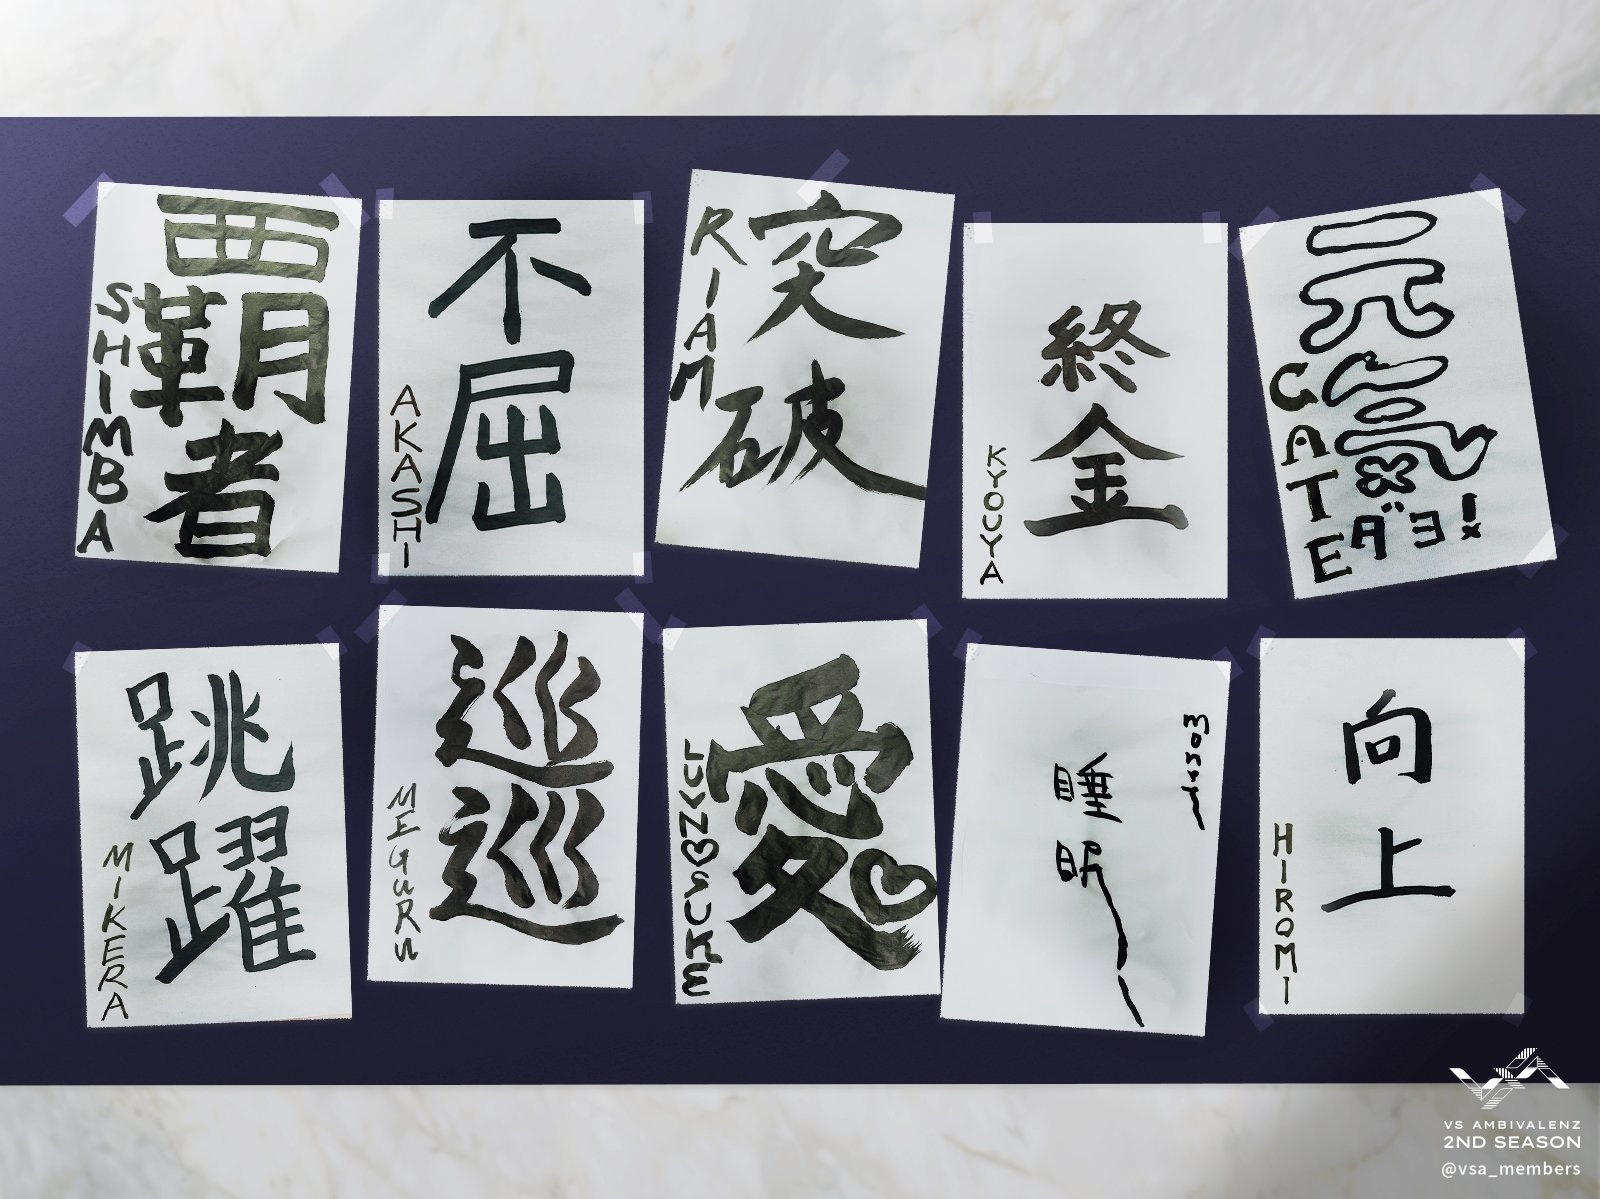 覇者
SHIMBA
不屈
AKASHI
突破
RIAM
終金
KYOUYA
元氣
ダヨ!
CATE
跳躍
MIKERA
巡巡
MEGURU
愛
睡眠
向上
HIROMI
VS AMBIVALENZ
2ND SEASON
@vsa_members